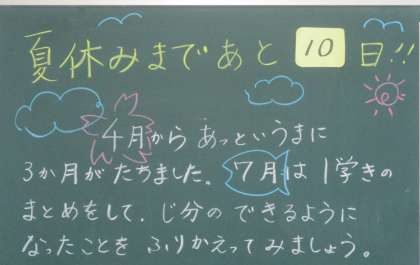 夏休みまであと 10 日!!
4月からあっというまに
3か月がたちました。7月は1学きの
まとめをして、じ分のできるように
なったことをふりかえってみましょう。